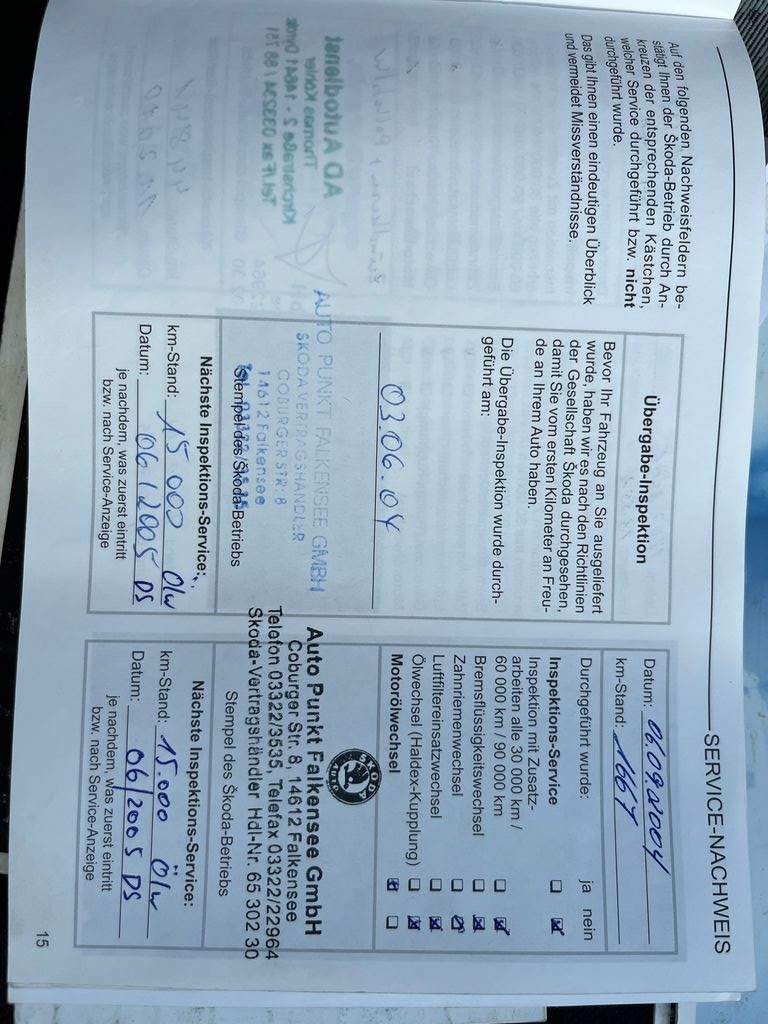 SERVICE-NACHWEIS
Auf den folgenden Nachweisfeldern be-
stätigt Ihnen der Škoda-Betrieb durch An-
kreuzen der entsprechenden Kästchen,
welcher Service durchgeführt bzw. nicht
durchgeführt wurde.
Das gibt Ihnen einen eindeutigen Überblick
und vermeidet Missverständnisse.
Übergabe-Inspektion
Bevor Ihr Fahrzeug an Sie ausgeliefert
wurde, haben wir es nach den Richtlinien
der Gesellschaft Škoda durchgesehen,
damit Sie vom ersten Kilometer an Freu-
de an Ihrem Auto haben.
Die Übergabe-Inspektion wurde durch-
geführt am:
03.06.04
AUTO PUNKT FALKENSEE GMBH
SKODA VERTRAGSHÄNDLER
COBURGER STR. 8
14612 Falkensee
Stempel des Škoda-Betriebs
Nächste Inspektions-Service:
km-Stand: 15 000 Ölw
Datum: 06/2005 DS
je nachdem, was zuerst eintritt
bzw. nach Service-Anzeige
Datum: 06.09.2004
km-Stand: 1667
Durchgeführt wurde: ja nein
Inspektions-Service
Inspektion mit Zusatz-
arbeiten alle 30 000 km /
60 000 km / 90 000 km
Bremsflüssigkeitswechsel
Zahnriemenwechsel
Luftfiltereinsatzwechsel
Ölwechsel (Haldex-Kupplung)
Motorölwechsel
SKODA
Auto Punkt Falkensee GmbH
Coburger Str. 8, 14612 Falkensee
Telefon 03322/3535, Telefax 03322/22964
Skoda-Vertragshändler Hdl-Nr. 65 302 30
Stempel des Škoda-Betriebs
Nächste Inspektions-Service:
km-Stand: 15.000 Ölw
Datum: 06/2005 DS
je nachdem, was zuerst eintritt
bzw. nach Service-Anzeige
15